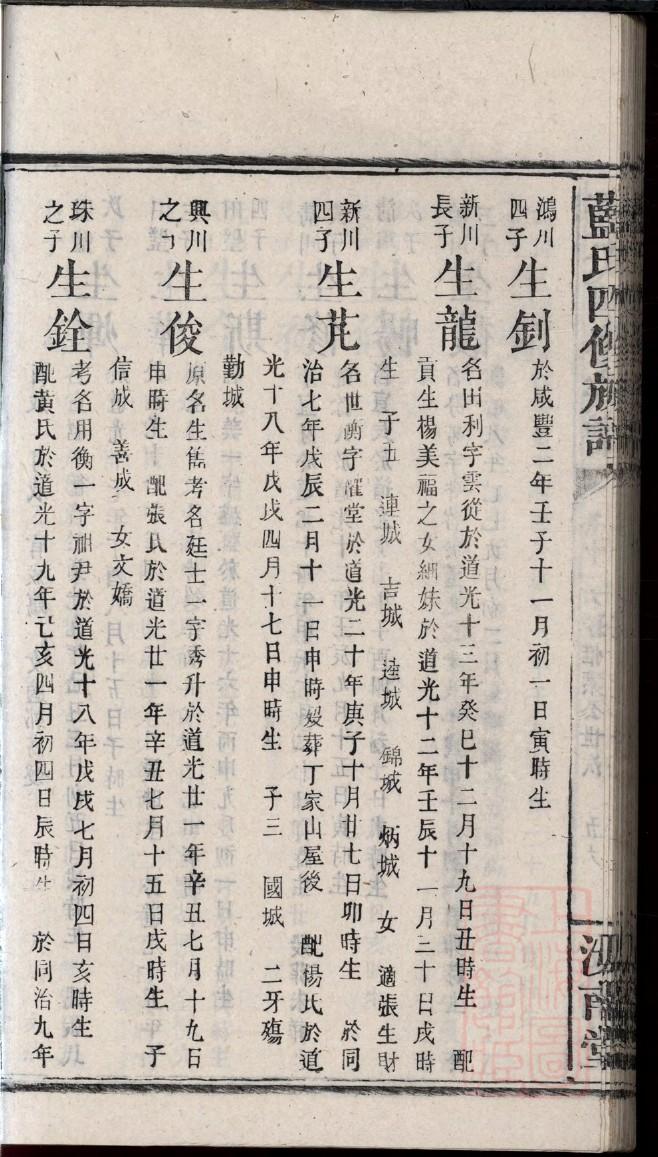 藍氏四修族譜
汝南堂
鴻川
四子
生釗
於咸豐二年壬子十一月初一日寅時生
新川
長子
生龍
名田利字雲從於道光十三年癸巳十二月十九日丑時生 配
貢生楊美福之女細妹於道光十二年壬辰十一月三十日戌時
生 子五 連城 吉城 逵城 錦城 炳城 女 適張生財
新川
四子
生芃
名世蘅字耀堂於道光二十年庚子十月廿七日卯時生 於同
治七年戊辰二月十一日申時歿葬丁家山屋後 配楊氏於道
光十八年戊戌四月十七日申時生 子三 國城 二牙殤
勤城
興川
之子
生俊
原名生儁考名廷士一字秀升於道光廿一年辛丑七月十九日
申時生 配張氏於道光廿一年辛丑七月十五日戌時生 子
信成 善成 女文嬌
珠川
之子
生銓
考名用衡一字湘尹於道光十八年戊戌七月初四日亥時生
配黃氏於道光十九年己亥四月初四日辰時生 於同治九年